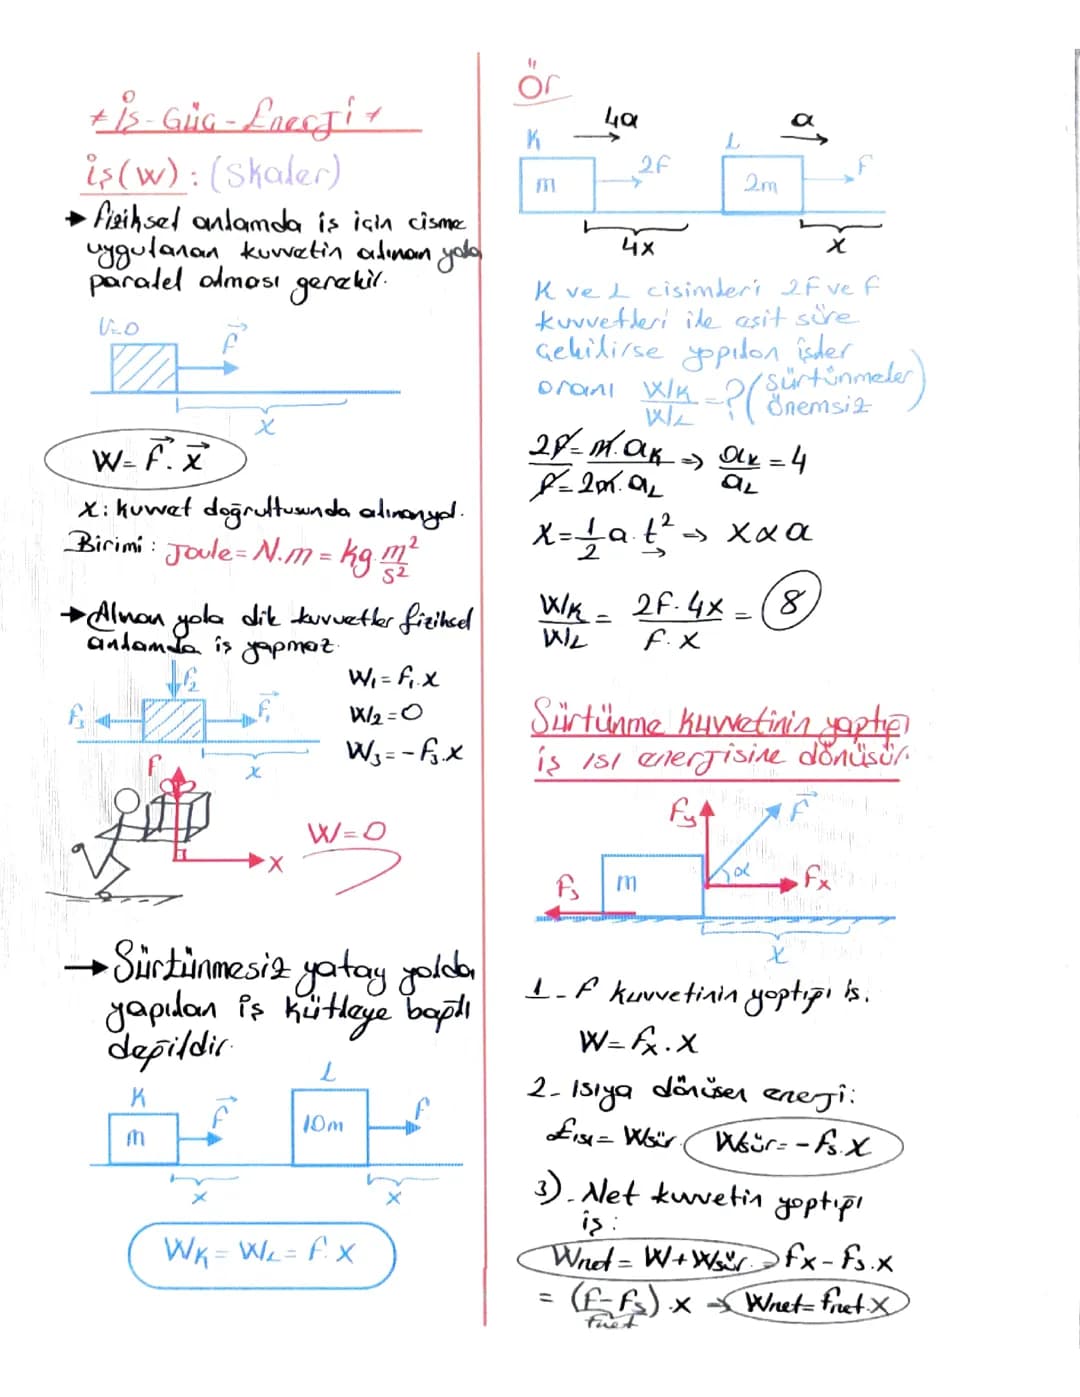 * İş - Güç - Enerji *
iş(W) : (Skaler)
→ Fiziksel anlamda iş için cisme
uygulanan kuvvetin alınan yola
paralel olması gerekir.
V=0
F
x
W = F . x
x : kuvvet doğrultusunda alınan yol.
Birimi : Joule = N.m = kg. m²/s²
→ Alınan yola dik kuvvetler fiziksel
anlamda iş yapmaz.
F₂
F₃
F₁
x
W₁ = F₁.x
W₂ = 0
W₃ = -F₃.x
F
x
W=0
→ Sürtünmesiz yatay yolda
yapılan iş kütleye bağlı
değildir.
K
m
F
x
L
10m
F
x
WK = WL = F.x
Ör
4a
a
K
m
2F
L
2m
F
4x
x
K ve L cisimleri 2F ve F
kuvvetleri ile eşit süre
çekilirse yapılan işler
oranı WK/WL = ? (Sürtünmeler önemsiz)
2F = m.aK / F = 2m.aL => aK/aL = 4
x = 1/2 a.t² => x α a
WK/WL = 2F.4x / F.x = 8
Sürtünme kuvvetinin yaptığı
iş ısı enerjisine dönüşür.
Fy
F
α
Fx
Fs
m
x
1 - F kuvvetinin yaptığı iş.
W = Fx . x
2 - Isıya dönüşen enerji:
Eısı = Wsür. Wsür = -Fs.x
3). Net kuvvetin yaptığı
iş :
Wnet = W + Wsür. = Fx - Fs.x
= (F-Fs).x → Wnet = Fnet.x
Fnet